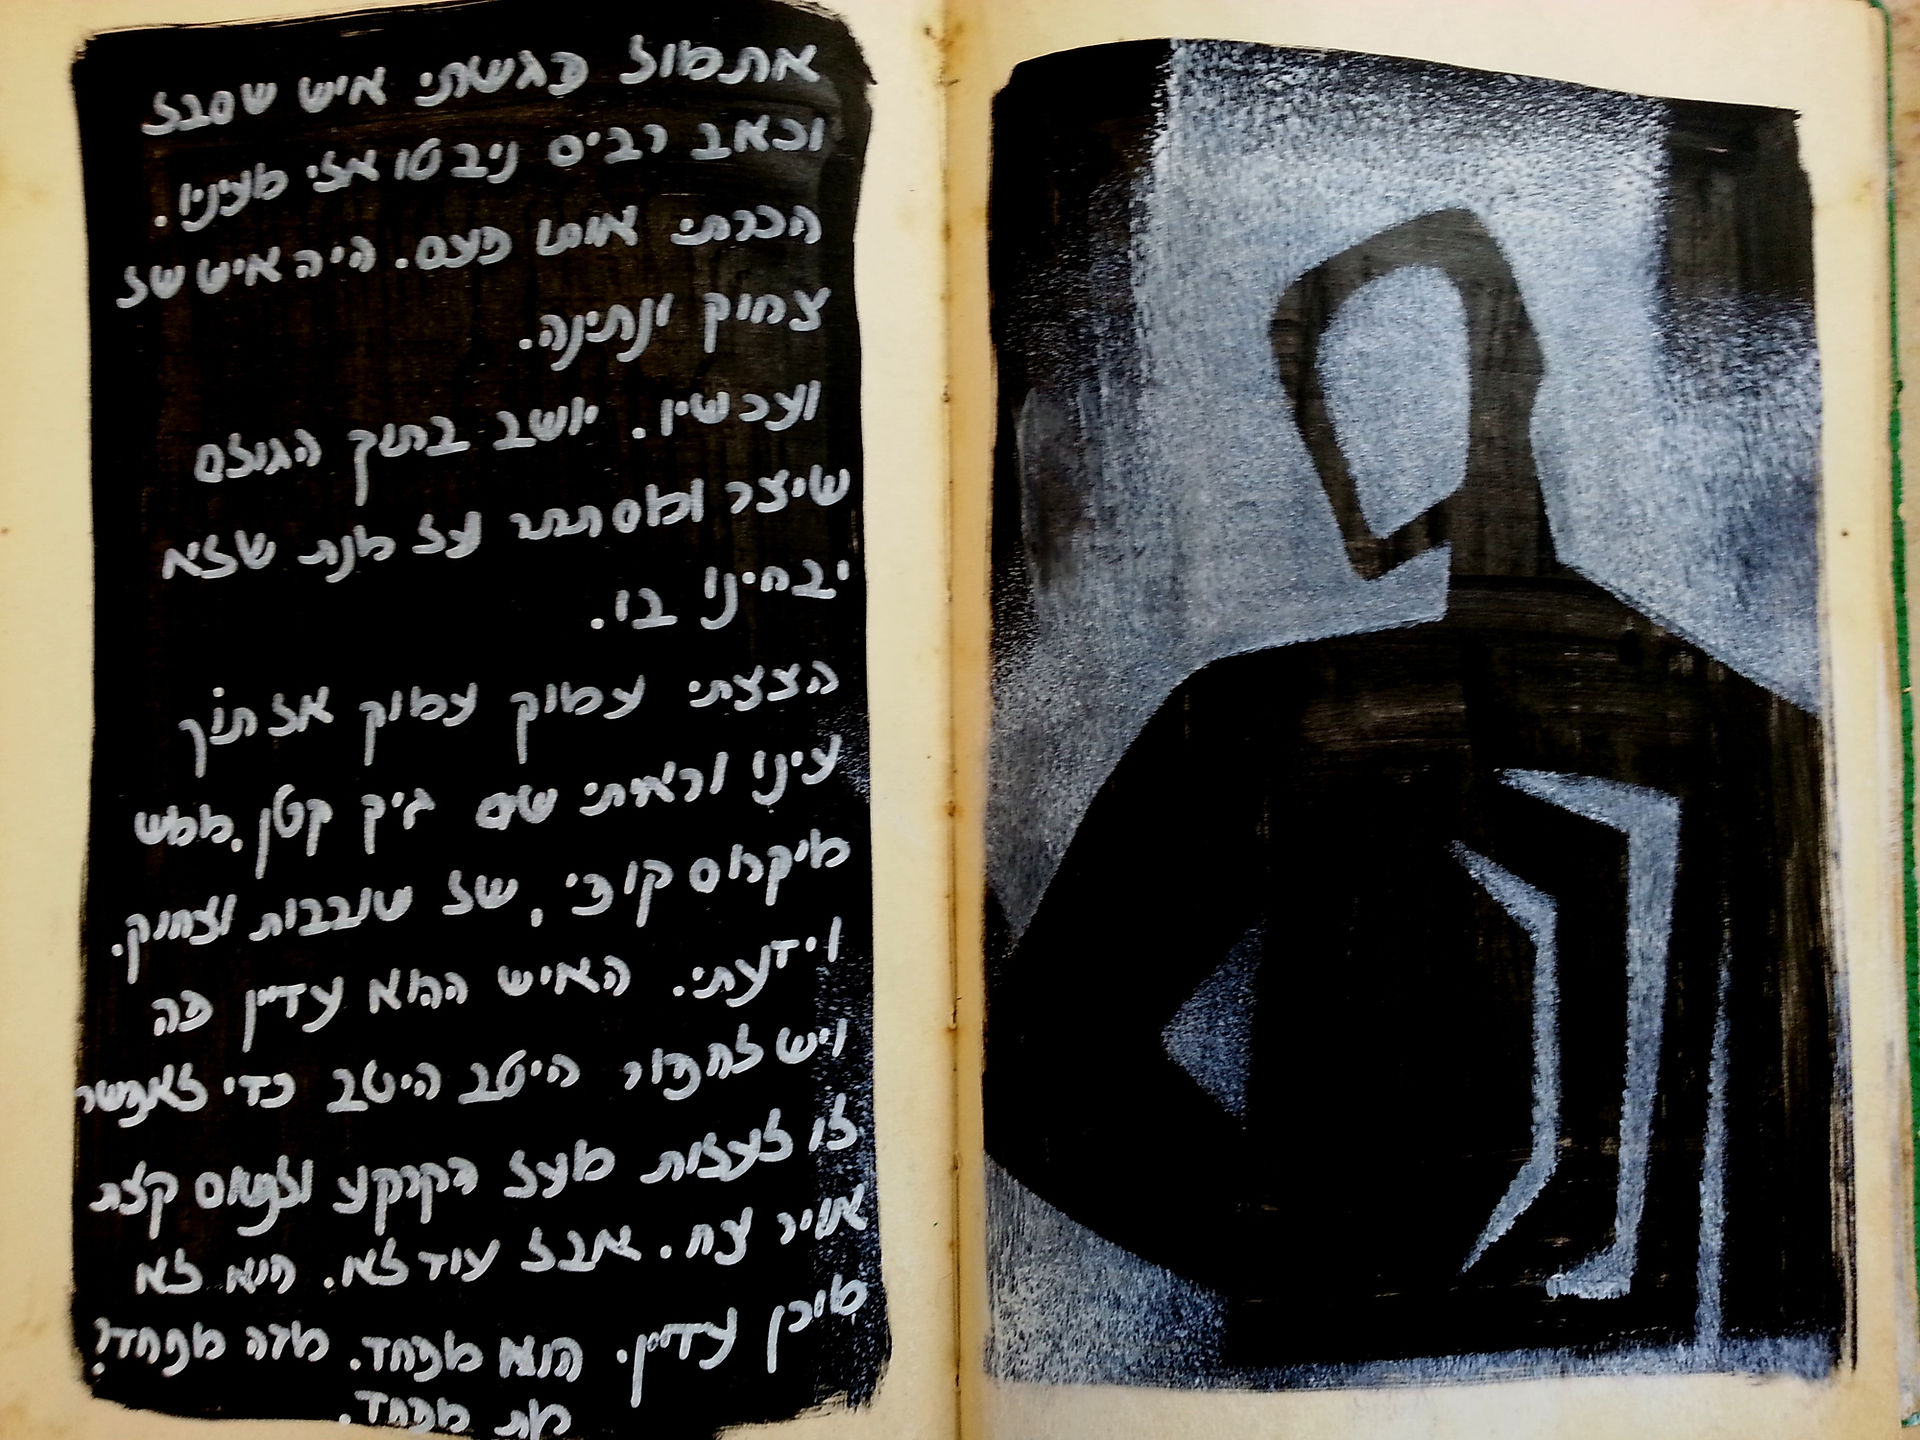 אתמול פגשתי איש שסבל
וכאב רבים ניבטו אלי מעיניו.
הכרתי אותו פעם. היה איש של
צחוק ונתינה.
ועכשיו. יושב בתוך הגולם
שיצר ומסתתר על מנת שלא
יבחינו בו.
הצצתי עמוק עמוק אל תוך
עיניו וראיתי שם גיק קטן, ממש
מיקרוסקופי, של שובבות וצחוק.
וידעתי. האיש ההוא עדיין פה
ויש לחפור היטב היטב כדי לאפשר
לו לעלות מעל הקרקע ולנשום קצת
אוויר צח. אבל עוד לא. הוא לא
מוכן עדיין. הוא מפחד. מזה מפחד?
מת מפחד.